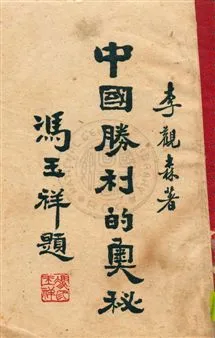 李觀森著
中國勝利的奧秘
馮玉祥題